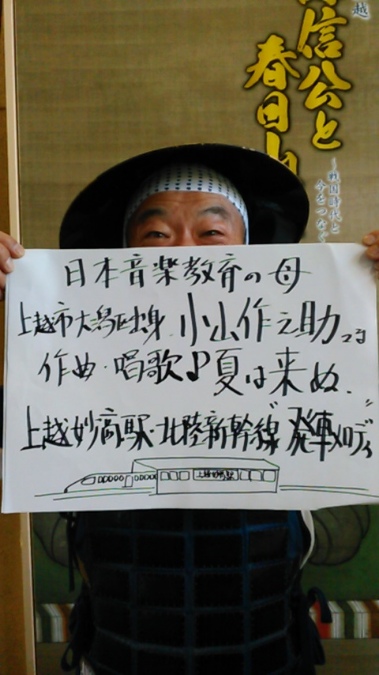 越
信公と
春日山
~戦国時代と
今をつなぐ
日本音楽教育の母
上越市大潟区出身 小山作之助さん
作曲・唱歌♪夏は来ぬ、
上越妙高駅・北陸新幹線"発車メロディ"
上越妙高駅